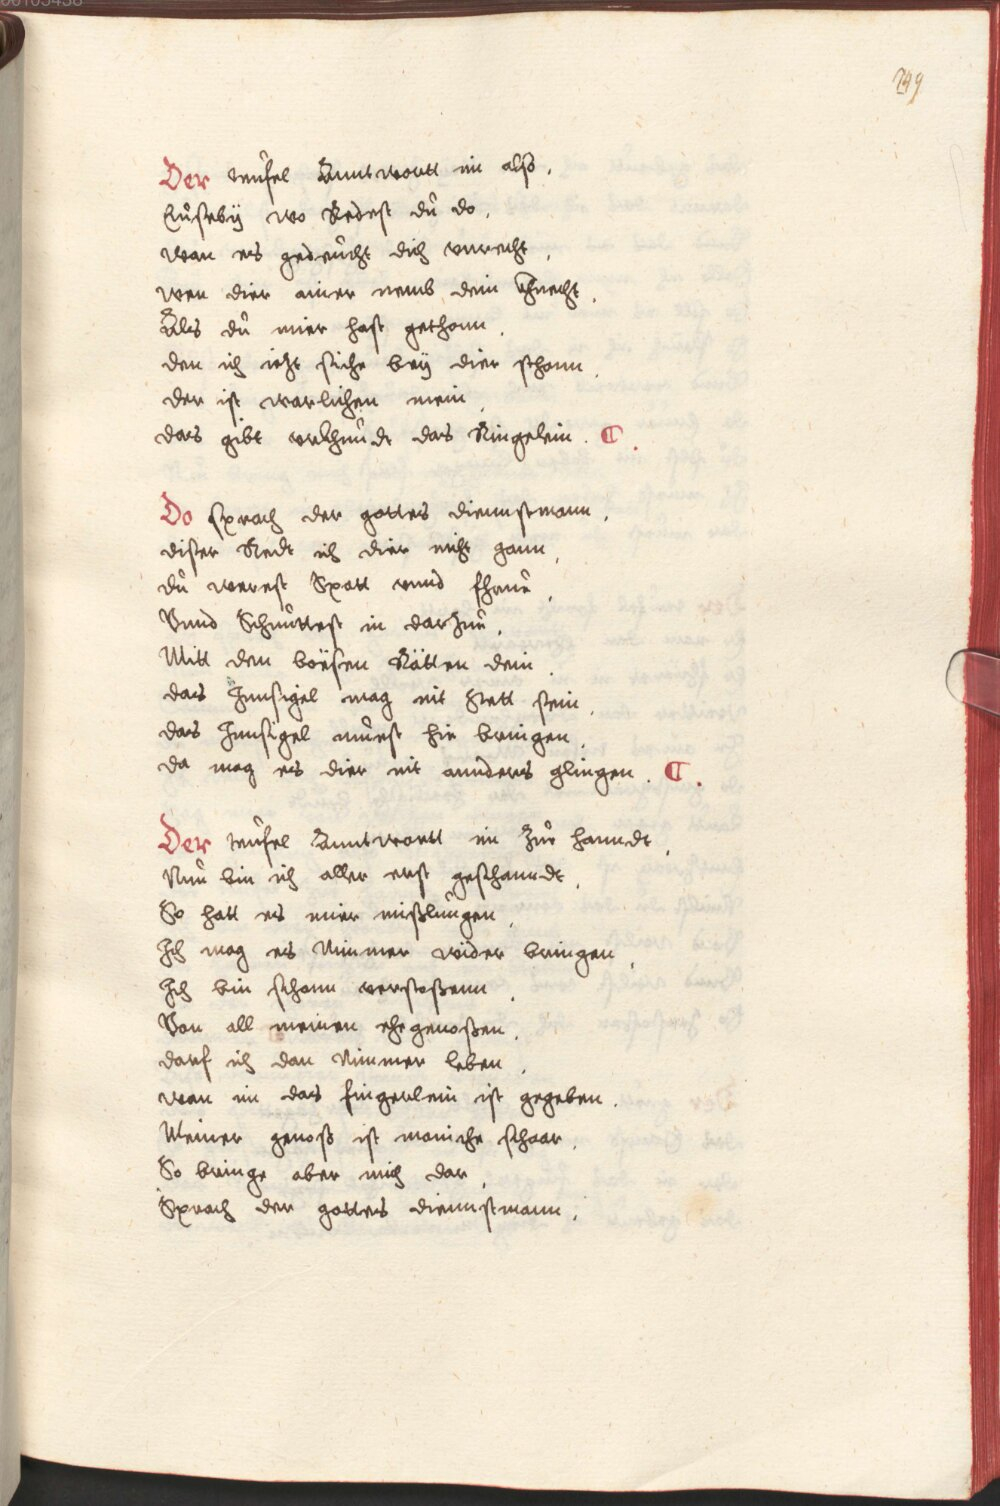 249
Der teüfel Anntwortt im also,
Eüsebÿ wo Redest dü do,
wan es gedeücht dich vnrecht,
wen dier ainer nemb dein Khnecht,
Als dü mier hast gethonn,
den ich iezt siche beÿ dier schonn,
der ist warlichen mein,
das gibt vrkhünde das Ringelein. ¶.
Do sprach der gottes diennstmann,
diser Redt ich dier nicht gann,
dü werest Spott vnnd
Vnnd Schnüttest in darzüe,
Mitt den böÿsen Rätten dein,
das Innsigel mag nit Stett sein,
das Innsigel müest hie bringen,
da mag es dier nit annders glingen. ¶.
Der teüfel Anntwortt im zür hanndt,
Nün bin ich aller erst geschanndt,
So hatt es mier mißlüngen,
Ich mag es Nimmer wider bringen,
Ich bin schonn verstoßenn,
Von all meinen ehegenoßen,
darf ich dan Nimmer leben,
wan im das fingerlein ist gegeben.
Meiner genoß ist maniche schaar,
So bringe aber mich dar,
Sprach der gottes diennstmann,